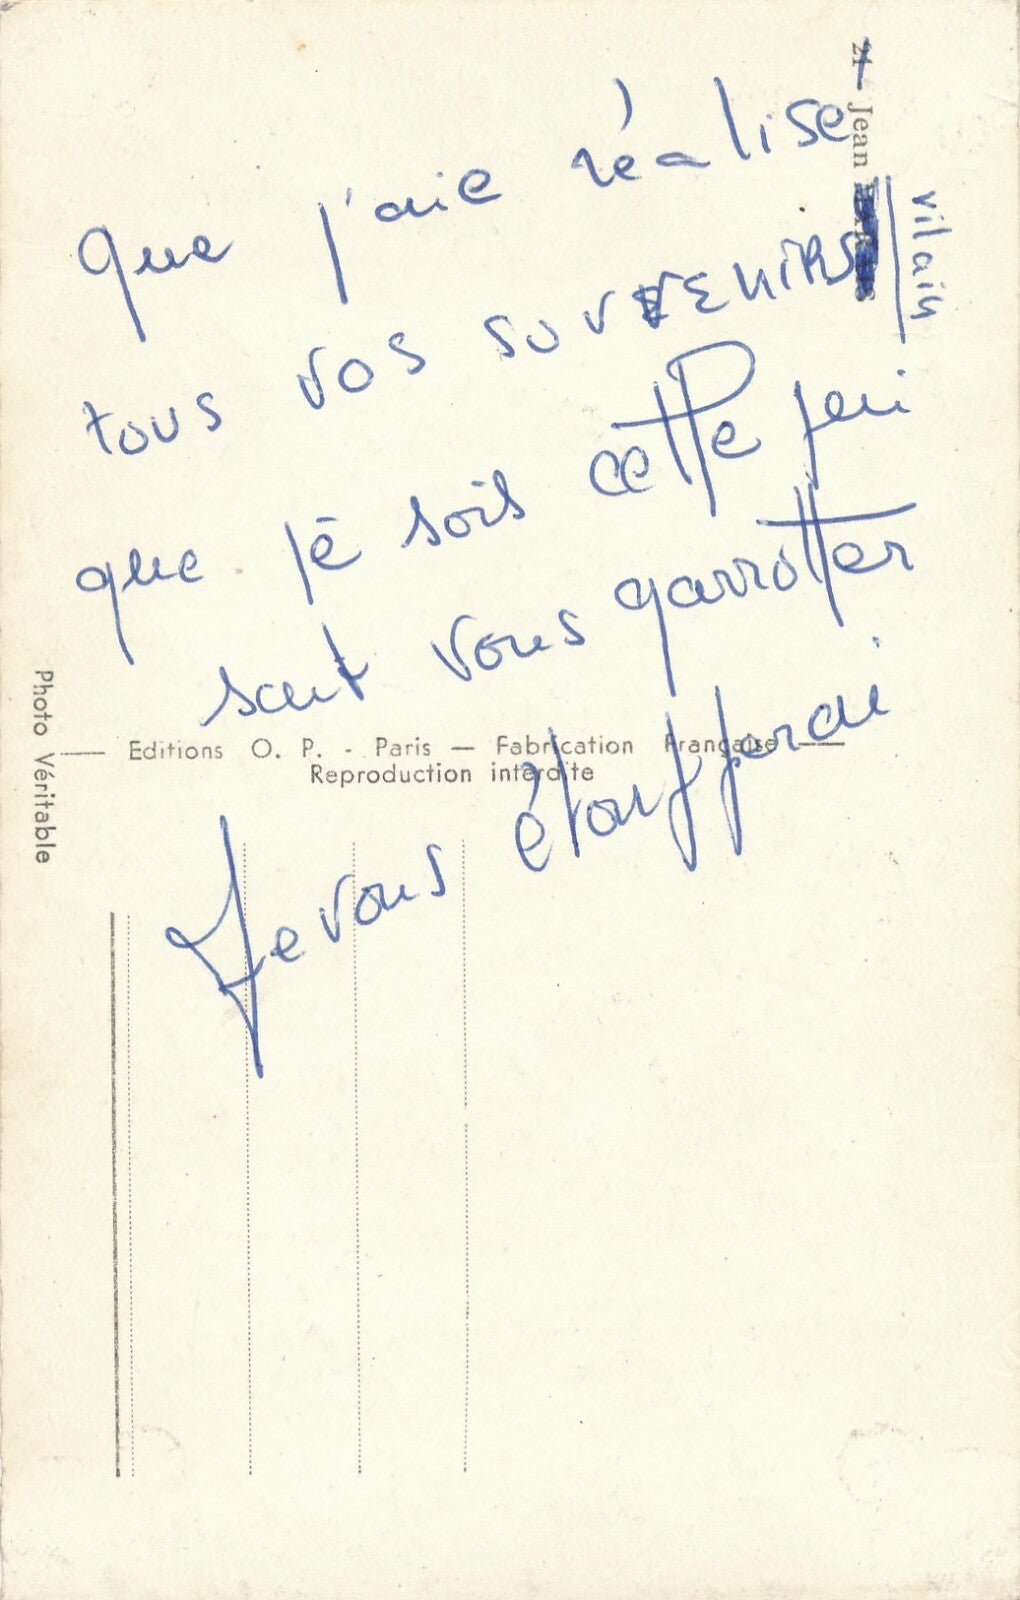 que j'aie réalise
tous vos souvenirs
que je sois cette qui
saut vous garrotter
Je vous étoufferai
21 - Jean
vilais
Editions O. P. - Paris — Fabrication Française
Reproduction interdite
Photo Véritable